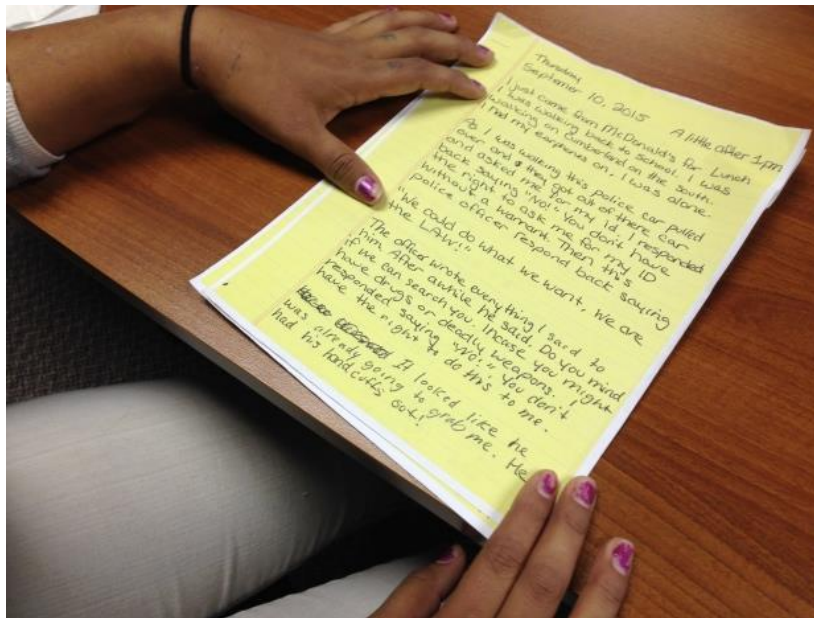 Thursday
September 10, 2015 A little after 1pm
I just came from McDonald's for Lunch
I was walking back to school. I was
walking on Cumberland on the south.
I had my earphones on. I was alone.
As I was walking this police car pulled
over and they got out of there car
and asked me for my Id. I responded
back saying "NO!" You don't have
the right to ask me for my ID
without a warrant. Then this
police officer respond back saying
"We could do what we want, we are
the LAW!"
The officer wrote everything I said to
him. After awhile he said. Do you mind
if we can search you. Incase you might
have drugs or deadly weapons. I
responded saying "NO!" You don't
have the right to do this to me.
It looked like he
was already going to grab me. He
had his handcuffs out!